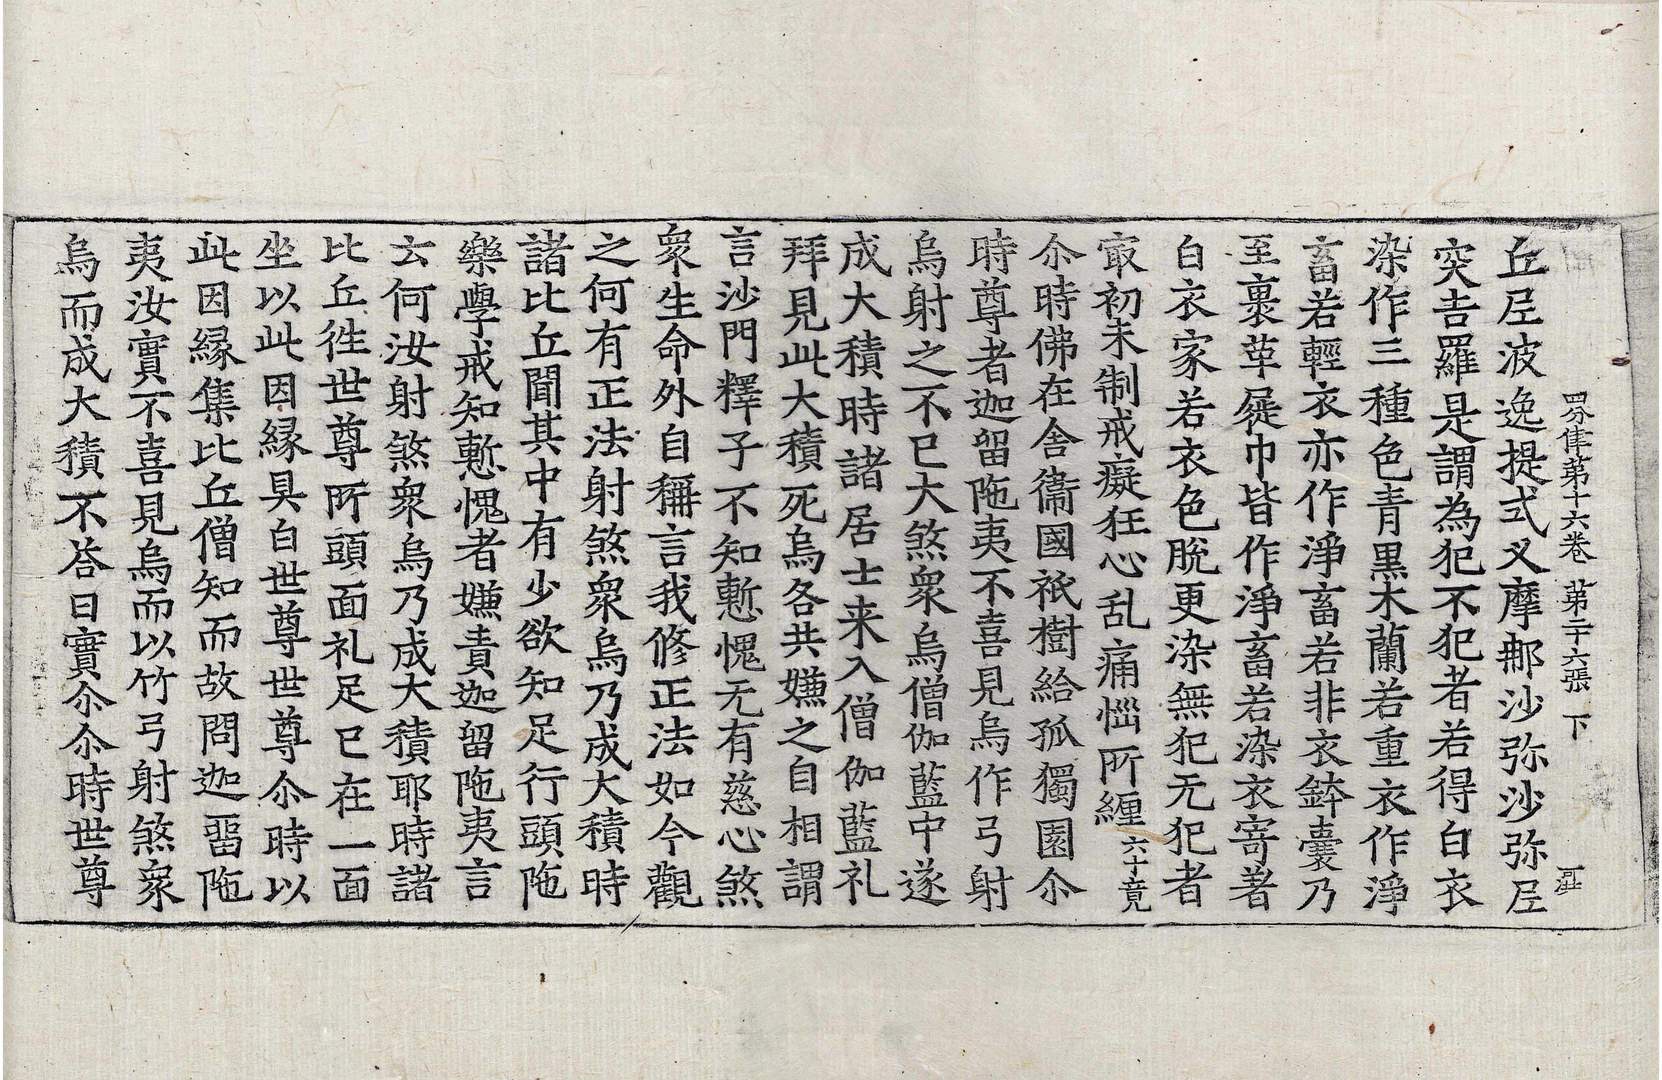 丘尼波逸提式叉摩那沙弥沙弥尼
突吉羅是謂為犯不犯者若得白衣
染作三種色青黑木蘭若重衣作淨
畜若輕衣亦作淨畜若非衣鉢囊乃
至裹革屣巾皆作淨畜若染衣寄著
白衣家若衣色脫更染無犯无犯者
㝡初未制戒癡狂心乱痛惱所纏六十竟
尒時佛在舍衞國祇樹給孤獨園尒
時尊者迦留陁夷不喜見烏作弓射
烏射之不已大煞衆烏僧伽藍中遂
成大積時諸居士来入僧伽藍礼
拜見此大積死烏各共嫌之自相謂
言沙門釋子不知慙愧无有慈心煞
衆生命外自稱言我修正法如今觀
之何有正法射煞衆烏乃成大積時
諸比丘聞其中有少欲知足行頭陁
樂學戒知慙愧者嫌責迦留陁夷言
云何汝射煞衆烏乃成大積耶時諸
比丘徃世尊所頭面礼足已在一面
坐以此因緣具白世尊世尊尒時以
此因緣集比丘僧知而故問迦留陁
夷汝實不喜見烏而以竹弓射煞衆
烏而成大積不荅曰實尒尒時世尊
四分律第十六卷 第二十六張 下